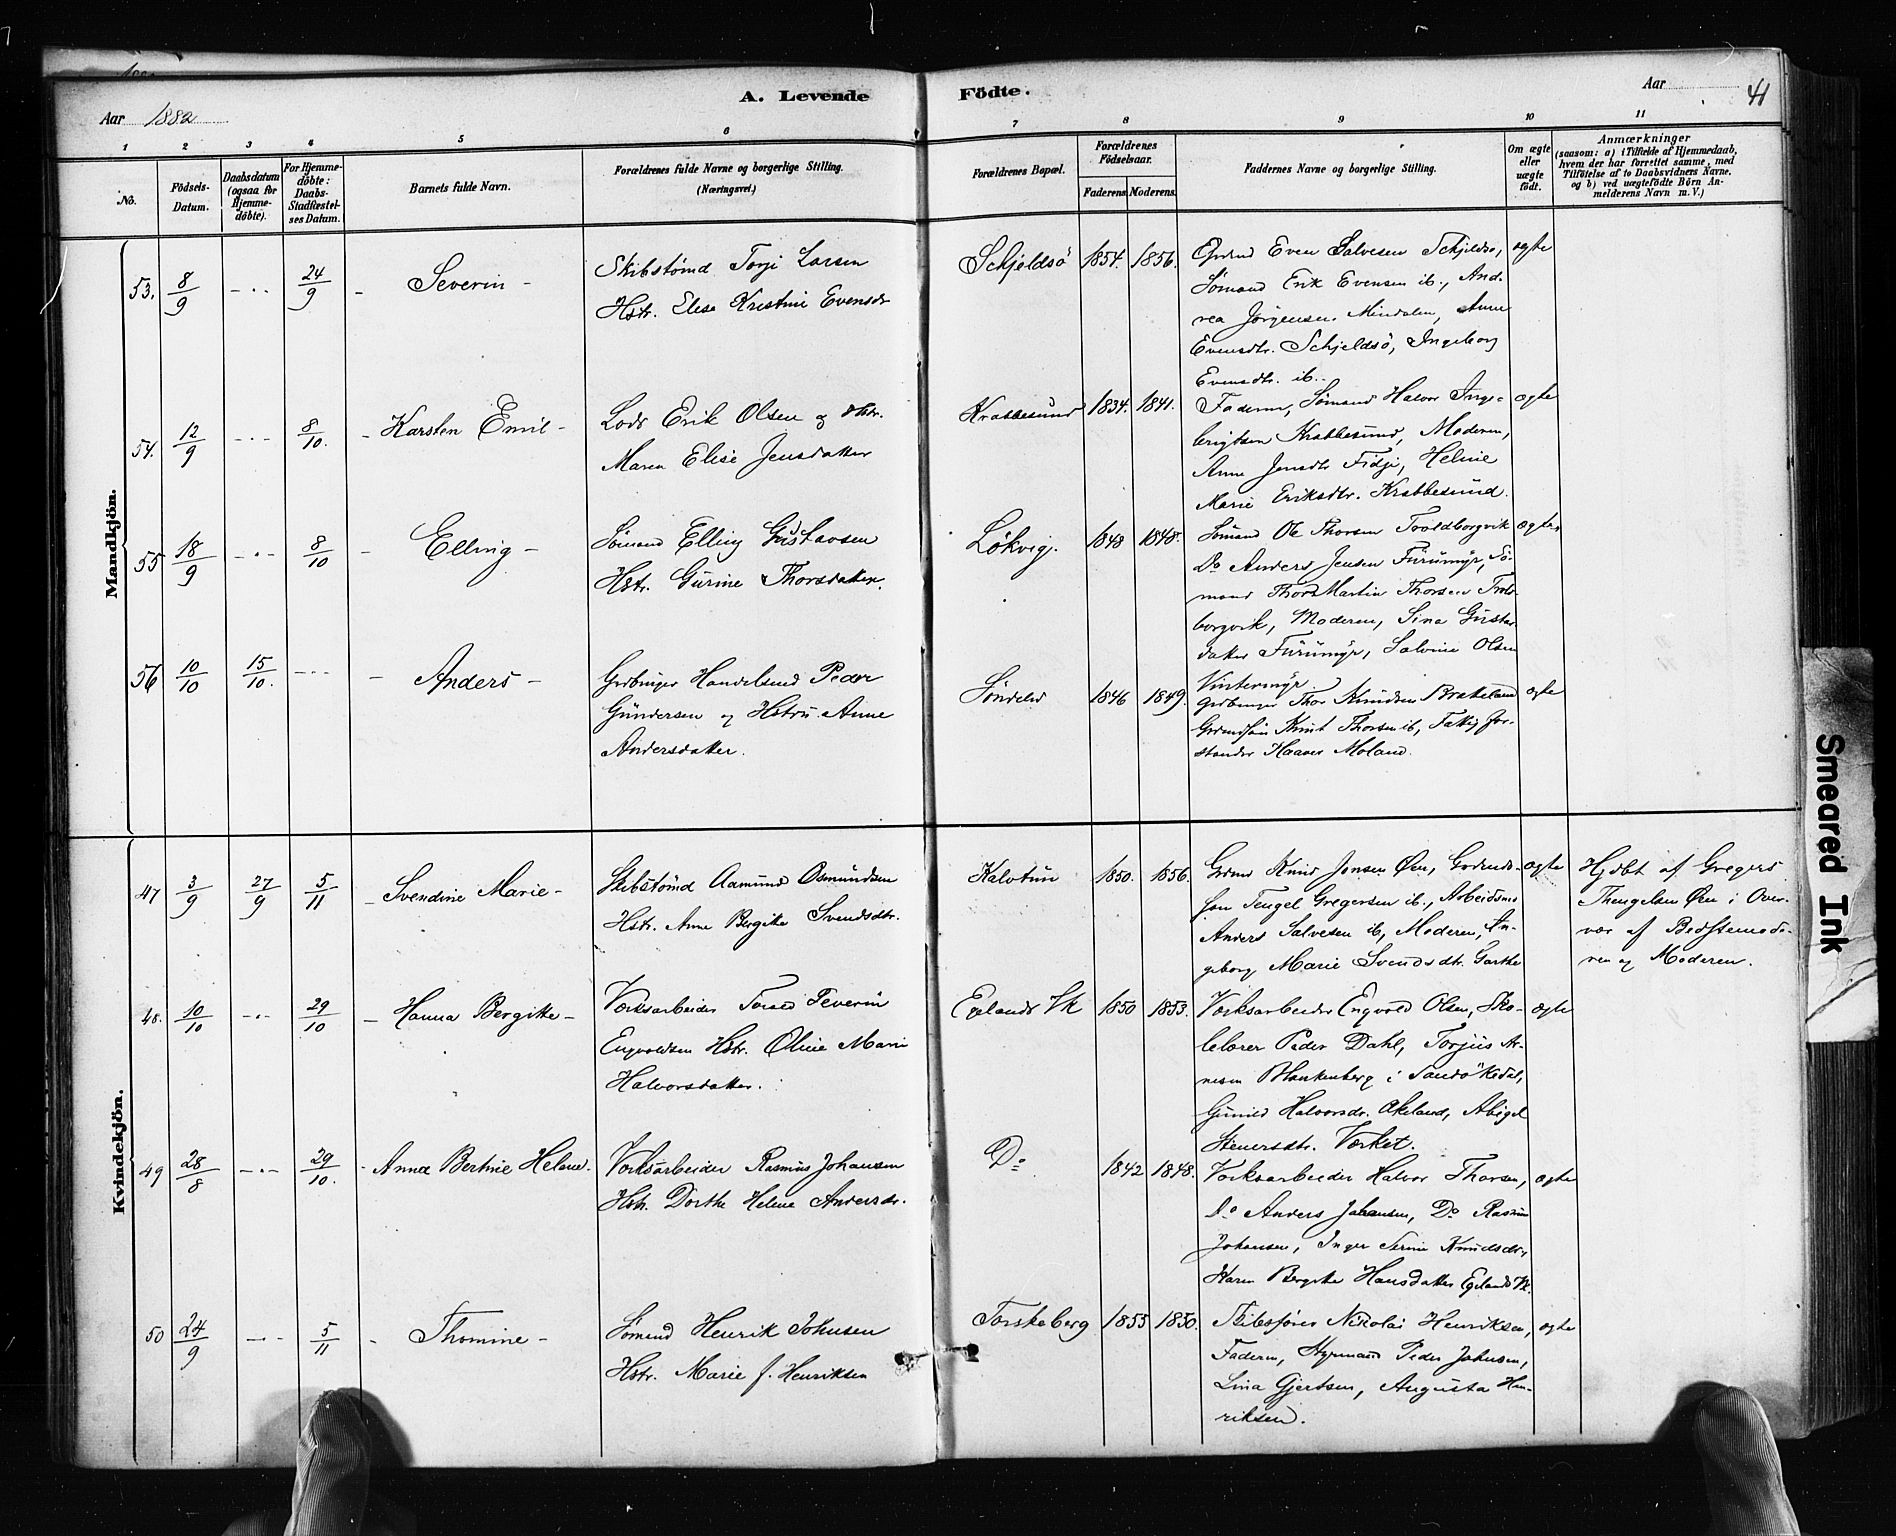 A. Levende Födte.
Aar 1882
Aar
41
1 2 3 4 5 6 7 8 9 10 11
No.
Födsels-Datum.
Daabsdatum (ogsaa for Hjemme-döbte).
For Hjemme-döbte: Daabs-Stadfæstel-ses Datum.
Barnets fulde Navn.
Forældrenes fulde Navne og borgerlige Stilling. (Næringsvei.)
Forældrenes Bopæl.
Forældrenes Födselsaar.
Faderens Moderens.
Faddernes Navne og borgerlige Stilling.
Om ægte eller uægte födt.
Anmærkninger
(saasom: a) i Tilfælde af Hjemmedaab, hvem der har forrettet samme, med Tilföielse af to Daabsvidners Navne, og b) ved uægtefödte Börn An-melderens Navn m. V.)
Mandkjön.
53. 8/9 -.- 24/9 - Severin -
Skibstømd Torji Larsen
Hstr. Elise Kristine Evensdr
Schjeldsö 1854. 1856.
Grdmd Even Salvesen Schjeldsö, ægte
Sömand Erik Evensen ib., And-
rea Jörgensen Mindalen, Anne
Evensdtr. Schjeldsö, Ingeborg
Evensdtr. ib.
54. 12/9 -.- 8/10. - Karsten Emil -
Lods Erik Olsen og Hstr.
Maren Elise Jensdatter
Krabbesund 1834. 1841.
Faderen, Sömand Halvor Inge- ægte
brigtsen Krabbesund, Moderen,
Anne Jensdtr Fidje, Helene
Marie Eriksdtr. Krabbesund.
55 18/9 -.- 8/10 - Elling -
Sömand Elling Gustavsen
Hstr. Gurine Thorsdatter.
Lökvig. 1848 1848.
Sömand Ole Thorsen Troldborgvik ægte
Do Anders Jensen Furumyr, Sö-
mand Thor Martin Thorsen Trold-
borgvik, Moderen, Sina Gustav
datter Furumyr, Salvine Olsen
Vintermyr
56 10/10 15/10. -.- - Anders -
Grdbruger Handelsmd Peder
Gundersen og Hstru Anne
Andersdatter.
Söndeled 1846 1849.
Grdbruger Thor Knudsen Brækeland ægte
Grdmdsön Knut Thorsen ib, Fattigfor-
stander Haaver Moland.
Kvindekjön.
47 3/9 27/9 5/11 - Svendine Marie -
Skibstömd Aamund Osmundsen
Hstr. Anne Bergitte Svendsdtr.
Kalvtun 1850. 1856.
Grdmd Knud Jensen Øen, Grdmds- ægte
søn Tengel Gregersen ib., Arbeidsmd
Anders Salvesen ib, Moderen, In-
geborg Marie Svendsdtr. Garthe
Hjdbt af Gregers
Thengelsen Øen i Over-
vær af Bedstemode-
ren og Moderen.
48. 10/10 -.- 29/10 - Hanna Bergitte -
Værksarbeider Tored Severin
Engvoldsen Hstr. Oline Marie
Halvorsdatter.
Egelands Vk 1850 1853.
Værksarbeider Engvold Olsen, Sko- ægte
lelærer Peder Dahl, Torjus Ar-
nesen Blankenberg i Sandökedal,
Gunild Halvorsdr. Akeland, Abigel
Steuersdtr. Værket.
49 28/8 -.- 29/10. - Anna Bertine Helene.
Værksarbeider Rasmus Johansen
Hstr. Dorthe Helene Andersdr.
Do 1842 1848.
Værksarbeider Halvor Thorsen, ægte
Do Anders Johansen, Do Rasmus
Johansen, Inger Serine Knudsdr,
Karen Bergitte Hansdatter Egelands Vk.
50 24/9 -.- 5/11 - Thomine -
Sömand Henrik Johnsen
Hstr. Marie f. Henriksen
Torskeberg 1855 1850.
Skibsförer Nikolai Henriksen, ægte
Faderen, Styrmand Peder Johnsen,
Lina Gjertsen, Augusta Hen-
riksen.
Smeared Ink